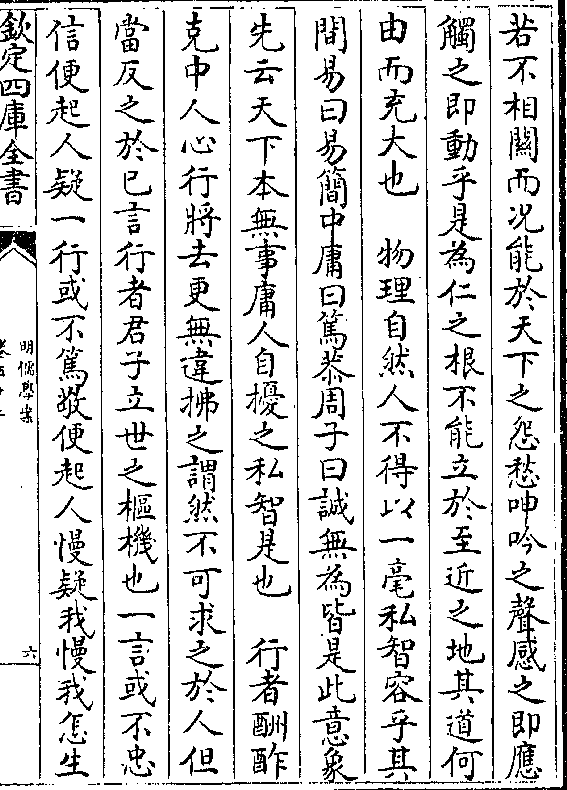 若不相關而况能於天下之怨愁呻吟之聲感之即應
觸之即動乎是為仁之根不能立於至近之地其道何
由而充大也　物理自然人不得以一毫私智容乎其
間易曰易簡中庸曰篤恭周子曰誠無為皆是此意象
先云天下本無事庸人自擾之私智是也　行者酬酢
克中人心行將去更無違拂之謂然不可求之於人但
當反之於已言行者君子立世之樞機也一言或不忠
信便起人疑一行或不篤敬便起人慢疑我慢我怎生
欽定四庫全書
明儒學案
六